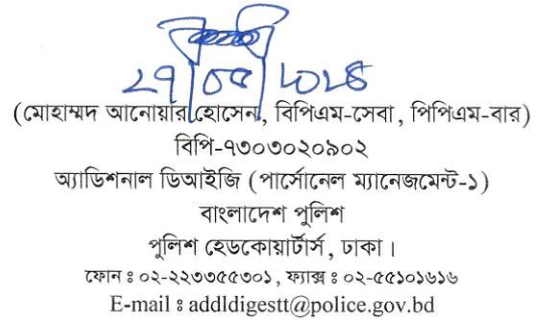 (মোহাম্মদ আনোয়ার হোসেন, বিপিএম-সেবা, পিপিএম-বার)
বিপি-৭৩০৩০২০৯০২
অ্যাডিশনাল ডিআইজি (পার্সোনেল ম্যানেজমেন্ট-১)
বাংলাদেশ পুলিশ
পুলিশ হেডকোয়ার্টার্স, ঢাকা।
ফোন ঃ ০২-২২৩৩৫৫৩০১, ফ্যাক্স ঃ ০২-৫৫১০১৬১৬
E-mail ঃ addldigestt@police.gov.bd